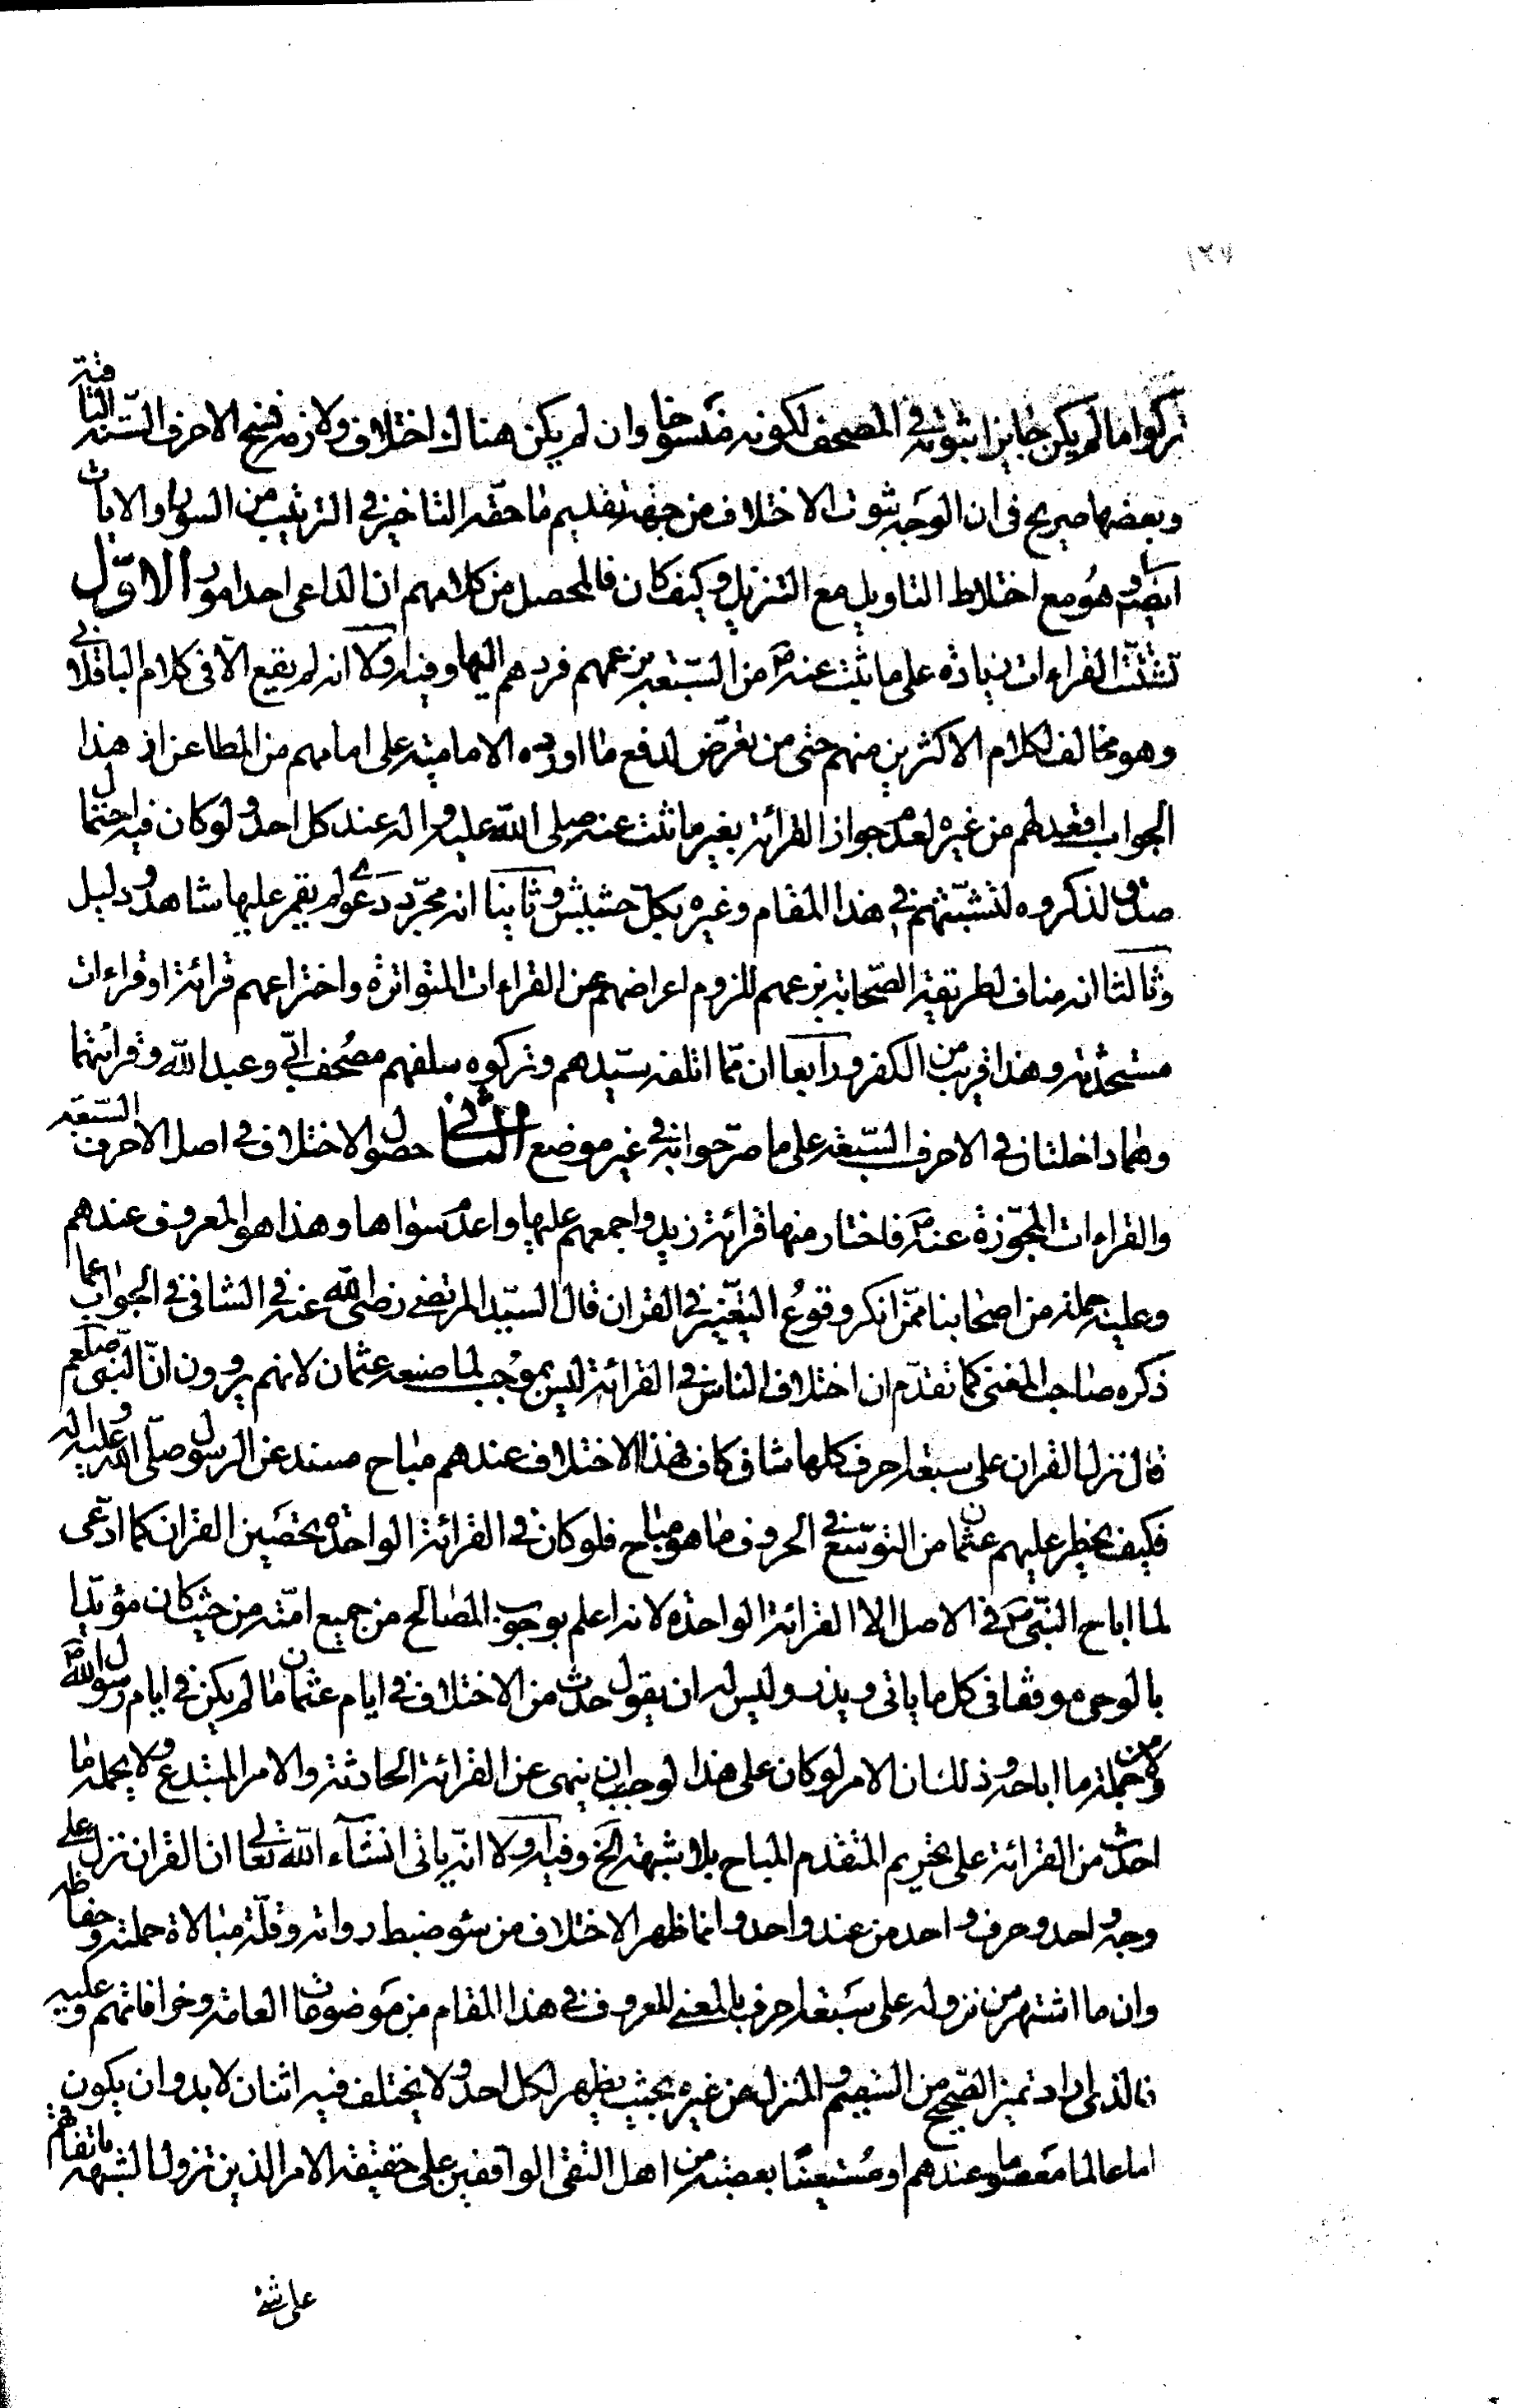 ١٢٧
تركوا ما لم يكن جايزا ثبوته في المصحف لكونه منسوخا وان لم يكن هناك اختلاف ولازمه نسخ الاحرف الستة الباقية
وبعضها صريح في ان الوجه ثبوت الاختلاف من جهة تقديم ما حقه التاخير في الترتيب من السور والايات
ايضا وهو مع اختلاط التاويل مع التنزيل وكيف كان فالمحصل من كلامهم ان الداعي احد امور الاول
تشتت القراءات زيادة على ما ثبت عنه ص من السبعة بزعمهم فردهم اليها وفيه اولا انه لم يقع الا في كلام الباقلاني
وهو مخالف لكلام الاكثرين منهم حتى من تعرض لدفع ما اورده الامامية على امامهم من المطاعن اذ هذا
الجواب افيد لهم من غيره لعدم جواز القرائة بغير ما ثبت عنه صلى الله عليه واله عند كل احد ولو كان فيه احتمال
صدق لذكروه لتشبثهم في هذا المقام وغيره بكل حشيش وثانيا انه مجرد دعوى لم يقم عليها شاهد ودليل
وثالثا انه مناف لطريقة الصحابة بزعمهم للزوم اعراضهم عن القراءات المتواترة واختراعهم قرائة او قراءات
مستحدثة وهذا قريب من الكفر ورابعا ان مما اتلفه سيدهم وتركوه سلفهم مصحف ابي وعبد الله وقرائتهما
وهما داخلتان في الاحرف السبعة على ما صرحوا به في غير موضع الثاني حصول الاختلاف في اصل الاحرف السبعة
والقراءات المجوزة عنه ص فاختار منها قرائة زيد واجمعهم عليها واعدم سواها وهذا هو المعروف عندهم
وعليه جملة من اصحابنا ممن انكر وقوع التغيير في القران قال السيد المرتضى رضي الله عنه في الشافي في الجواب عما
ذكره صاحب المغني كما تقدم ان اختلاف الناس في القرائة ليس بموجب لما صنعه عثمان لانهم يروون ان النبي صلعم
قال نزل القران على سبعة احرف كلها شاف كاف فهذا الاختلاف عندهم مباح مسند عن الرسول صلى الله عليه واله
فكيف يحظر عليهم عثمان من التوسع في الحروف ما هو مباح فلو كان في القرائة الواحدة تحصين القران كما ادعى
لما اباح النبي ص في الاصل الا القرائة الواحدة لانه اعلم بوجوب المصالح من جميع امته من حيث كان مؤيدا
بالوحي موفقا في كل ما ياتي ويذر وليس له ان يقول حدث من الاختلاف في ايام عثمان ما لم يكن في ايام رسول الله ص
ولا من جملة ما اباحه وذلك ان الامر لو كان على هذا لوجب ان ينهى عن القرائة الحادثة والامر المبتدع ولا يحمله ما
احدث من القرائة على تحريم المتقدم المباح بلا شبهة الخ وفيه اولا انه ياتي انشآء الله تعالى ان القران نزل على
وجه واحد وحرف واحد من عند واحد وانما ظهر الاختلاف من سوء ضبط رواته وقلة مبالاة حملته وحفاظه
وان ما اشتهر من نزوله على سبعة احرف بالمعنى المعروف في هذا المقام من موضوعات العامة وخرافاتهم وعليه
فالذي اراد تميز الصحيح من السقيم والمنزل من غيره بحيث يظهر لكل احد ولا يختلف فيه اثنان لا بد وان يكون
اما عالما معصوما عندهم او مستعينا بعصبة من اهل التقى الواقفين على حقيقة الامر الذين تزول الشبهة باتفاقهم
على شئ